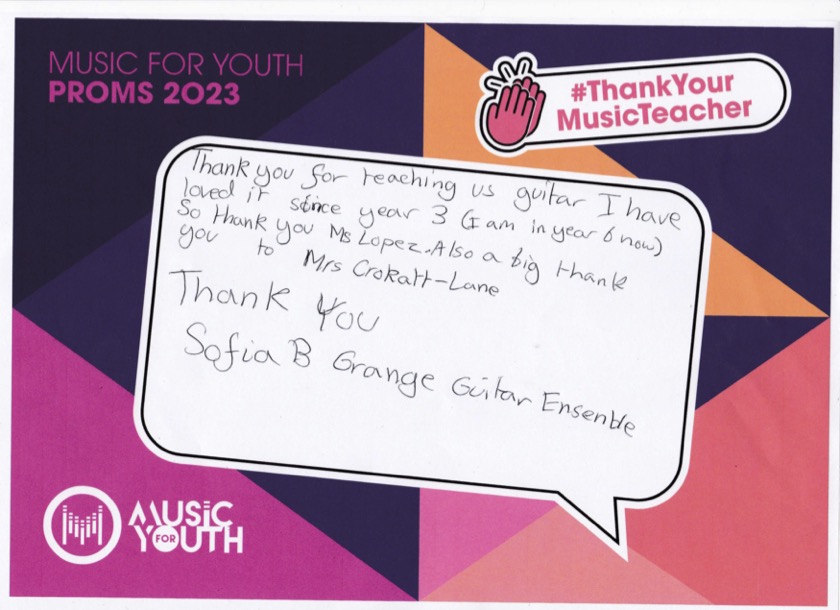 MUSIC FOR YOUTH
PROMS 2023
#ThankYour
MusicTeacher
Thank you for teaching us guitar I have
loved it since year 3 (I am in year 6 now)
So thank you Ms Lopez. Also a big thank
you to Mrs Crokatt-Lane
Thank You
Sofia B Grange Guitar Ensenble
MUSIC
FOR
YOUTH